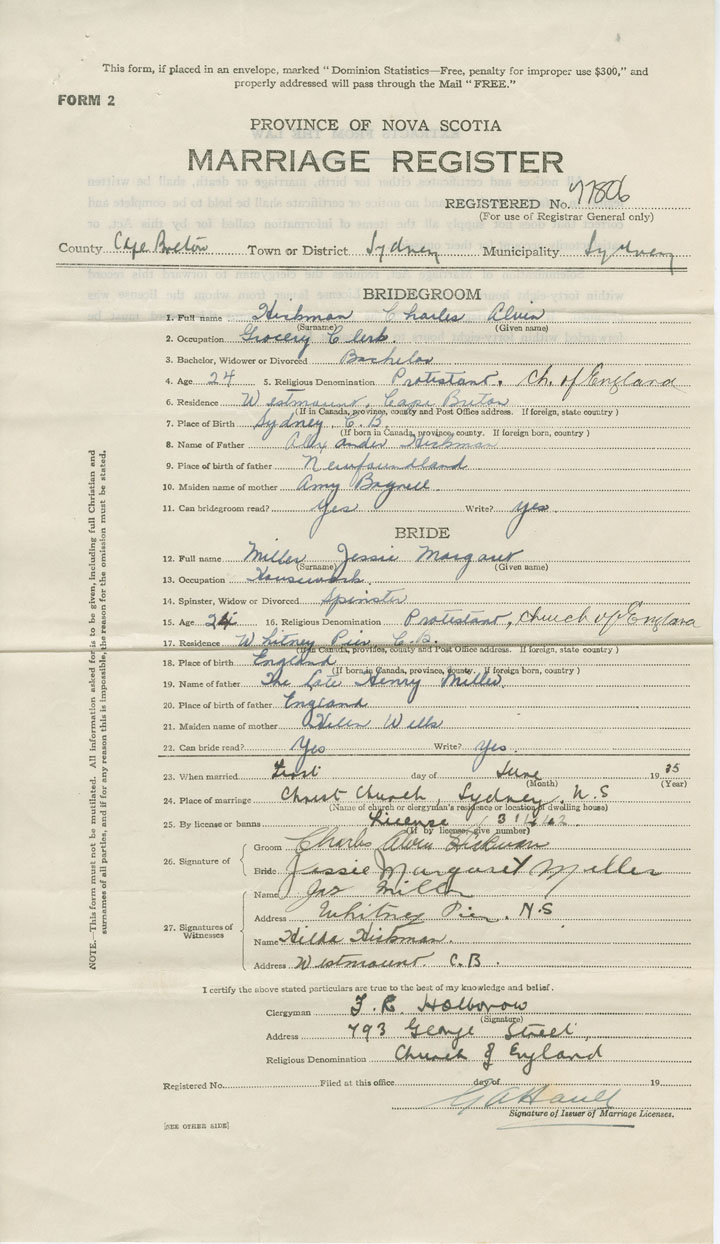 This form, if placed in an envelope, marked "Dominion Statistics—Free, penalty for improper use $300," and
properly addressed will pass through the Mail "FREE."
FORM 2
PROVINCE OF NOVA SCOTIA
MARRIAGE REGISTER
REGISTERED No. 77806
(For use of Registrar General only)
County Cape Breton Town or District Sydney Municipality Sydney
BRIDEGROOM
1. Full name Hickman Charles Alvin
(Surname) (Given name)
2. Occupation Grocery Clerk.
3. Bachelor, Widower or Divorced Bachelor
4. Age 24 5. Religious Denomination Protestant, Ch. of England
6. Residence Westmount, Cape Breton
(If in Canada, province, county and Post Office address. If foreign, state country)
7. Place of Birth Sydney, C.B.
(If born in Canada, province, county. If foreign born, country)
8. Name of Father Alexander Hickman
9. Place of birth of father Newfoundland
10. Maiden name of mother Amy Bagnell
11. Can bridegroom read? Yes Write? yes
BRIDE
12. Full name Miller Jessie Margaret
(Surname) (Given name)
13. Occupation Housework.
14. Spinster, Widow or Divorced Spinster
15. Age 24 16. Religious Denomination Protestant, Church of England
17. Residence Whitney Pier C.B.
(If in Canada, province, county and Post Office address. If foreign, state country)
18. Place of birth England
(If born in Canada, province, county. If foreign born, country)
19. Name of father The late Henry Miller.
20. Place of birth of father England
21. Maiden name of mother Helen Wells
22. Can bride read? Yes Write? Yes.
23. When married First day of June 1935
(Month) (Year)
24. Place of marriage Christ Church, Sydney, N.S
(Name of church or clergyman's residence or location of dwelling house)
25. By license or banns License
(If by license, give number)
26. Signature of
Groom Charles Alvin Hickman
Bride Jessie Margaret Miller
27. Signatures of Witnesses
Name Jas Miller
Address Whitney Pier. N.S
Name Hilda Hickman.
Address Westmount C.B.
I certify the above stated particulars are true to the best of my knowledge and belief.
Clergyman F. R. Holborow
(Signature)
Address 793 George Street,
Religious Denomination Church of England
Registered No. Filed at this office day of 19
Signature of Issuer of Marriage Licenses.
[SEE OTHER SIDE]
NOTE.—This form must not be mutilated. All information asked for is to be given, including full Christian and
surnames of all parties, and if for any reason this is impossible, the reason for the omission must be stated.